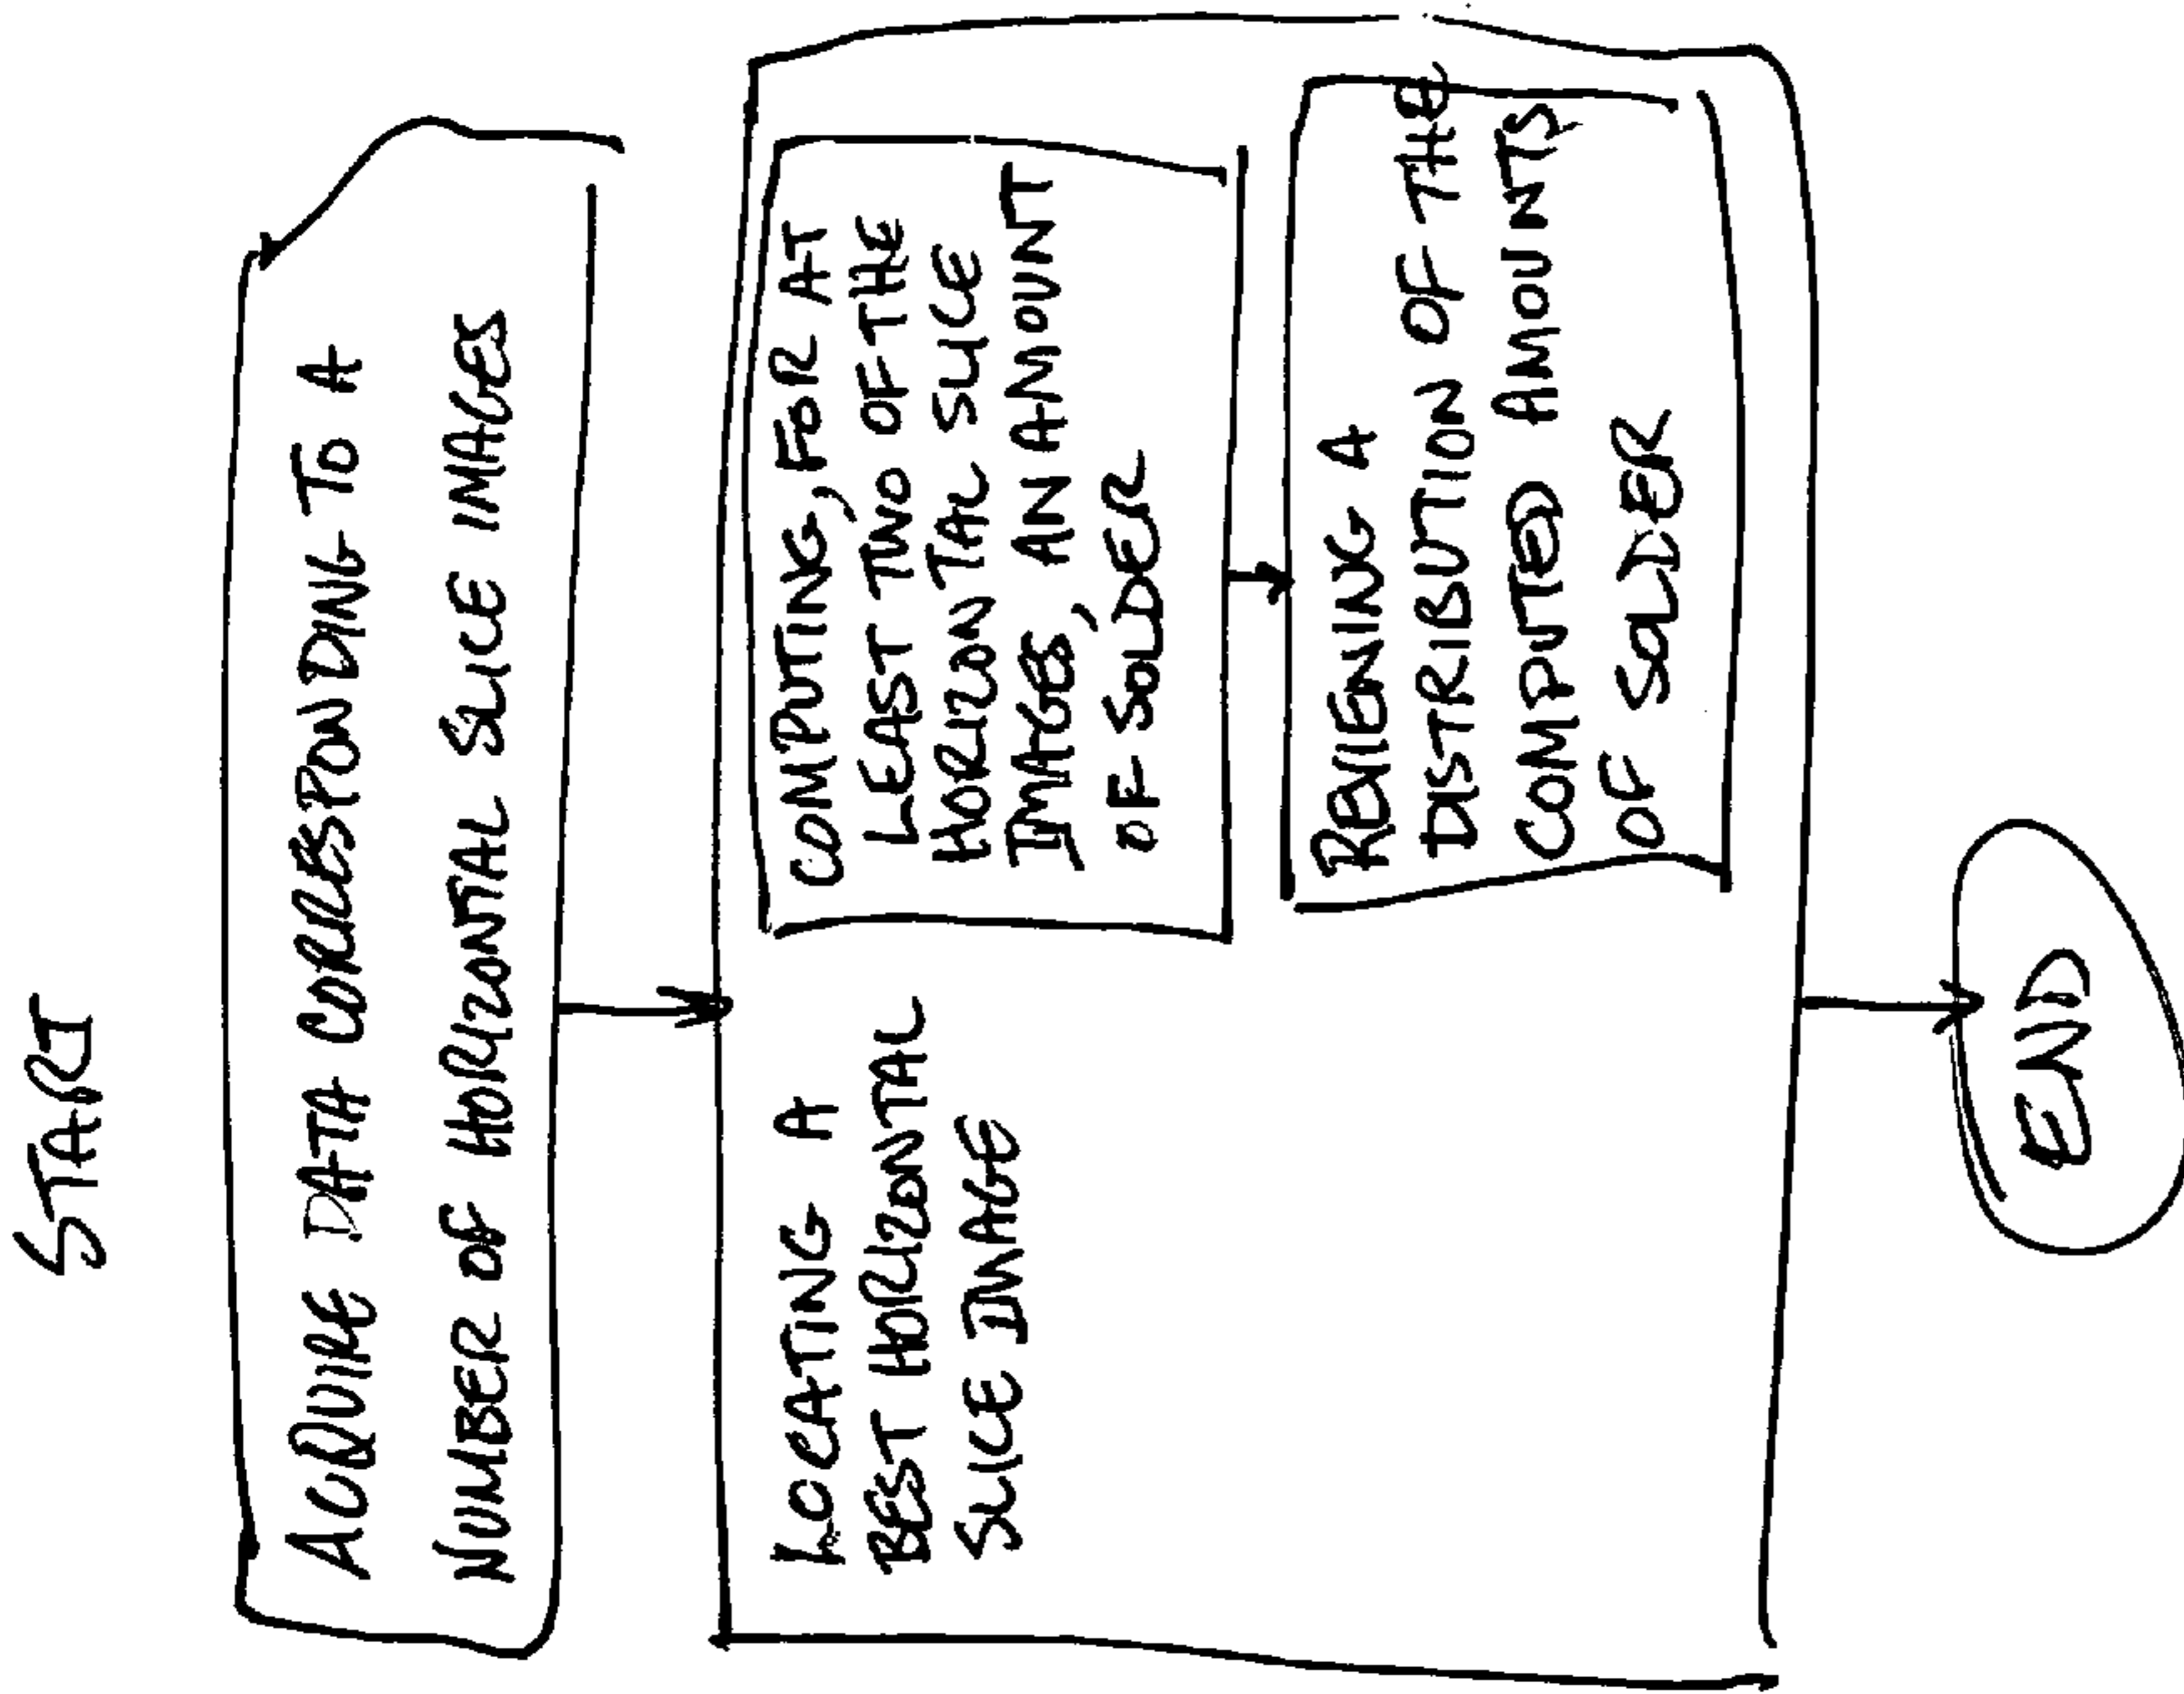 START
ACQUIRE DATA CORRESPONDING TO A
NUMBER OF HORIZONTAL SLICE IMAGES
LOCATING A
BEST HORIZONTAL
SLICE IMAGE
COMPUTING, FOR AT
LEAST TWO OF THE
HORIZON TAL SLICE
IMAGES, AN AMOUNT
OF SOLDER
REVIEWING A
DISTRIBUTION OF THE
COMPUTED AMOUNTS
OF SOLDER
END